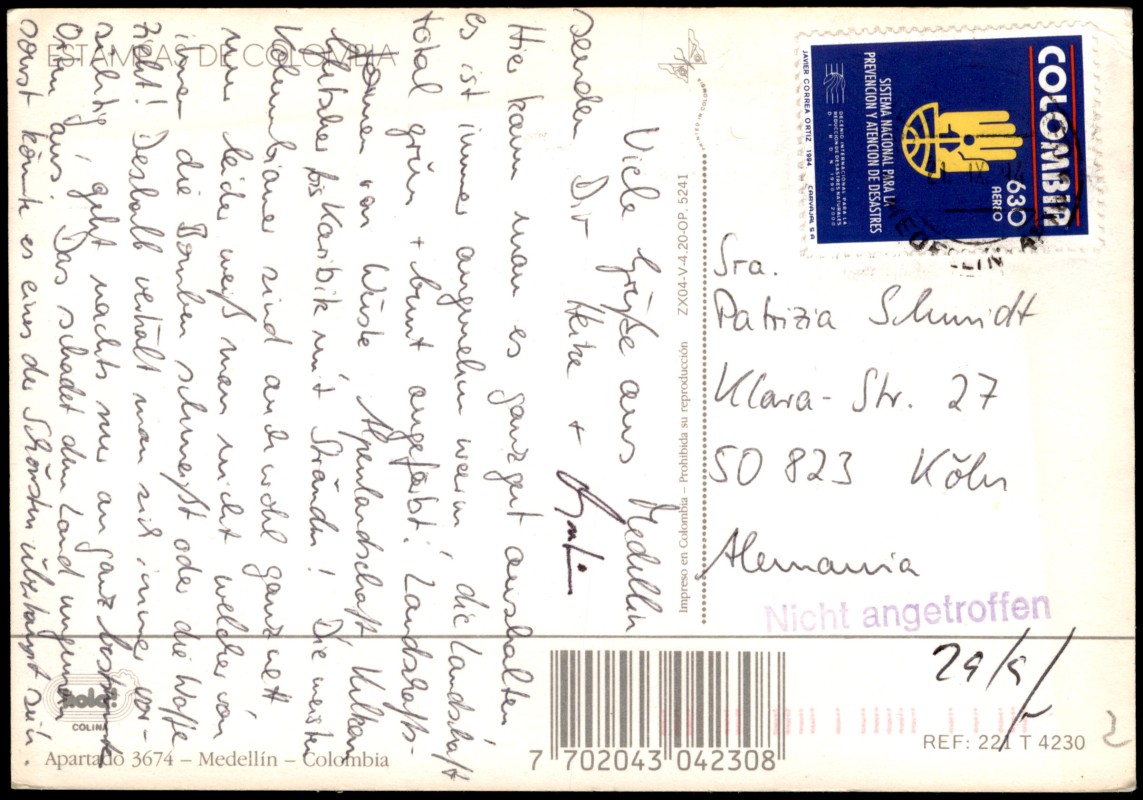 ESTAMPAS DE COLOMBIA
Viele Grüße aus Medellin
senden Dir Heike +
Hier kann man es ganz gut aushalten
es ist immer angenehm warm, die Landschaft
total grün + bunt angefärbt! Landschafts-
von Wüste, Alpenlandschaft, Vulkane,
bis Karibik mit Stränden! Die meisten
Kolumbianer sind auch wohl ganz nett
nur leider weiß man nicht welcher von
ihnen die Bomben schmeißt oder die Waffe
zieht! Deshalb verhält man sich immer vor-
sichtig, geht nachts nur an ganz bestimmte
Orte aus. Das schadet dem Land ungemein
sonst könnte es eines der Schönsten überhaupt sein.
Impreso en Colombia – Prohibida su reproducción ZX04-V-4.20-OP. 5241
COLOMBIA
630
AEREO
SISTEMA NACIONAL PARA LA
PREVENCION Y ATENCION DE DESASTRES
DECENIO INTERNACIONAL PARA LA
REDUCCION DE DESASTRES NATURALES
D I R D N 1990 - 2000
JAVIER CORREA ORTIZ 1994 CARVAJAL S A
MEDELLIN
Sra.
Patrizia Schmidt
Klara-Str. 27
50 823 Köln
Alemania
Nicht angetroffen
29/9/
¡hola!
COLINA
Apartado 3674 – Medellín – Colombia
7 702043 042308
REF: 221 T 4230
2